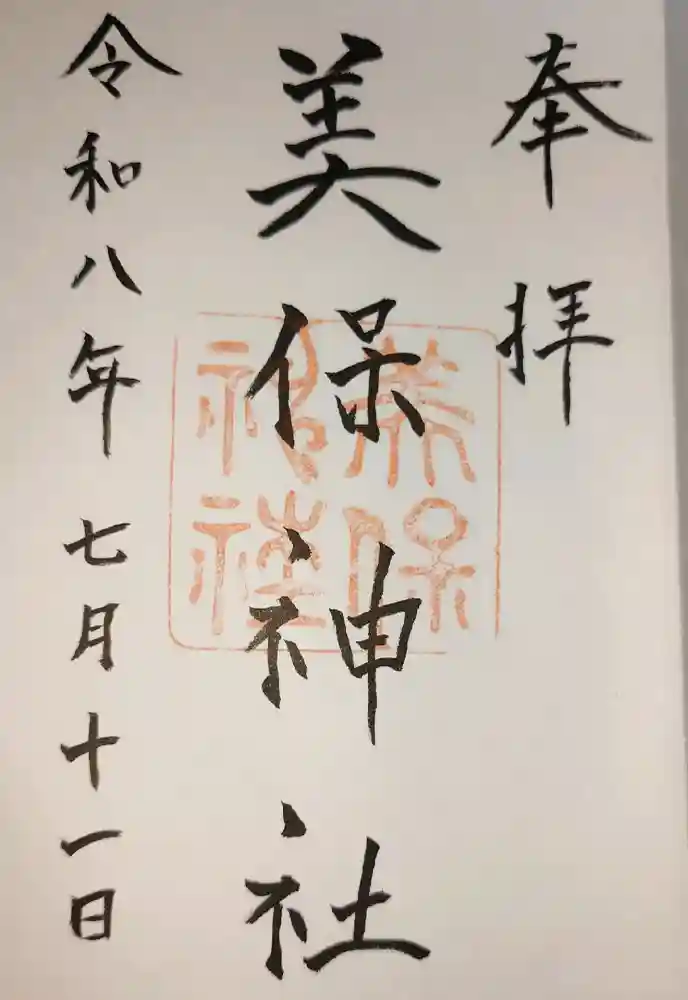 奉拝
美保神社
美保神社
令和八年七月十一日